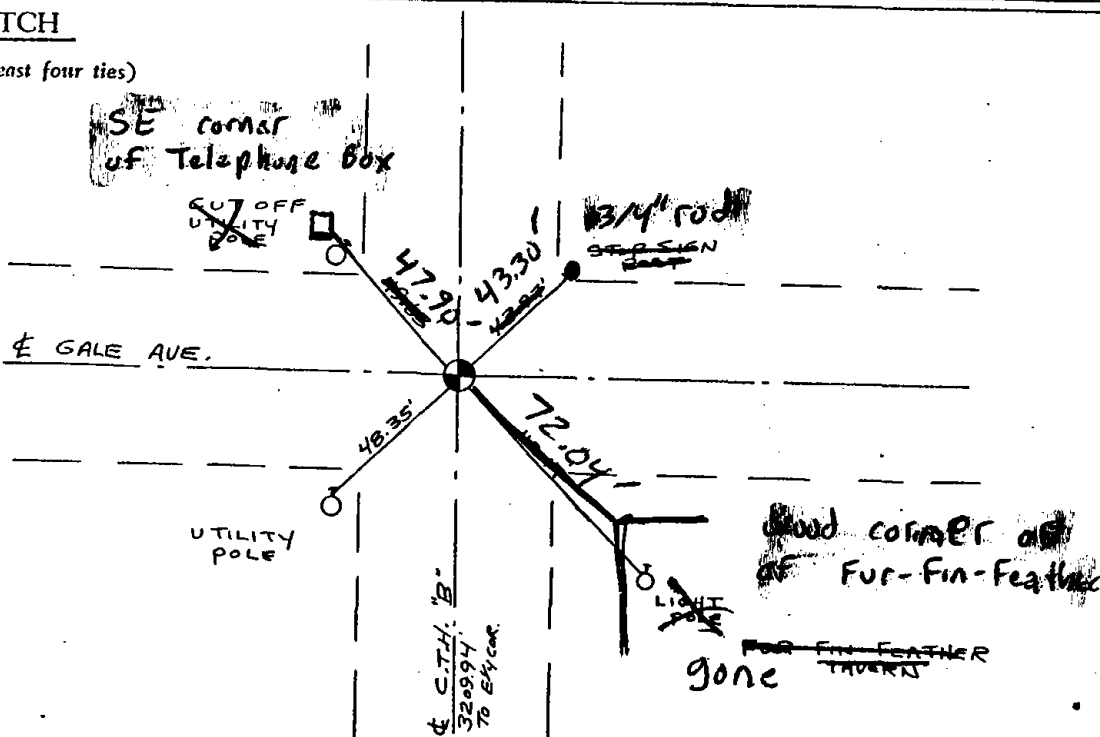 TCH
east four ties)
SE corner
of Telephone Box
CUT OFF
UTILITY
POLE
3/4" rod
STOP SIGN
POST
47.90
43.30'
℄ GALE AVE.
48.35'
72.04
UTILITY
POLE
wood corner
of Fur-Fin-Feathe
LIGHT
POLE
gone
FUR FIN FEATHER
TAVERN
℄ C.T.H. "B"
3209.94'
TO E1/4 COR.